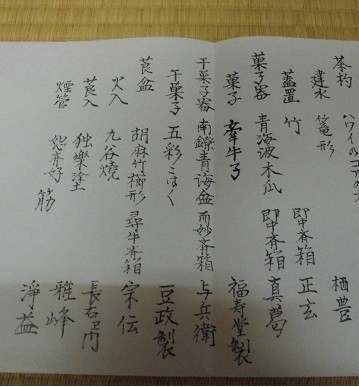 茶杓 ハワイの
建水 篭形 栖豊
蓋置 竹 即中斉箱 正玄
菓子器 青海波木瓜 即中斉箱 真葛
菓子 牽牛子 福寿堂製
干菓子器 南鐐青海盆 而妙斉箱 与兵衛
干菓子 五彩こはく 豆政製
莨盆 胡麻竹櫛形 尋牛斉箱 宗伝
火入 九谷焼 長右ヱ門
莨入 独楽塗 雅峰
煙管 惣斉好 筋 淨益